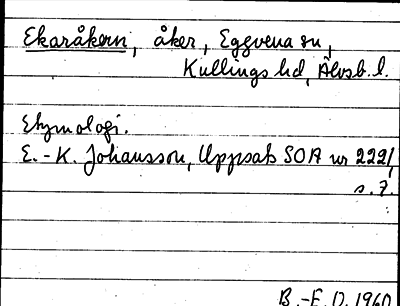 Ekaråkern, åker, Eggvena sn,
Kullings hd, Älvsb. l.
Etymologi.
E.-K. Johansson, Uppsats SOA nr 222,
s. 7.
B.-E. O. 1960